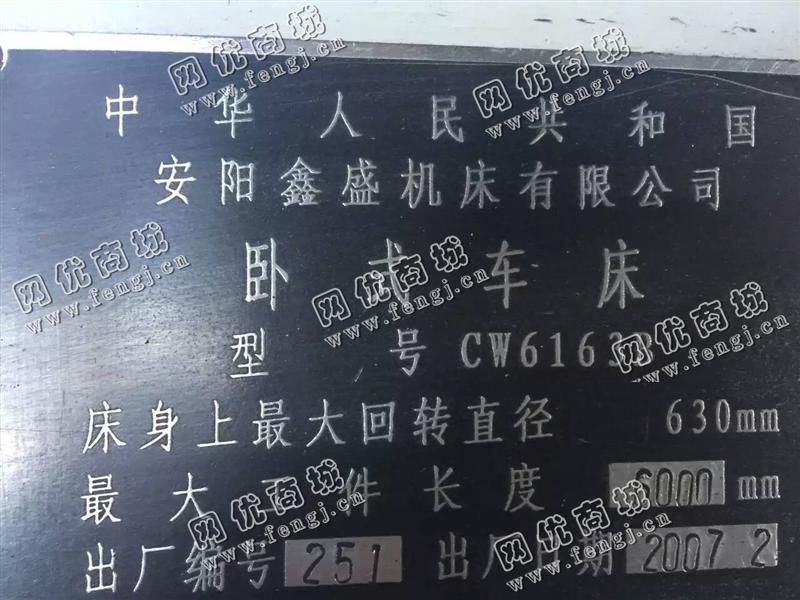 中华人民共和国
安阳鑫盛机床有限公司
卧式车床
型号 CW6163B
床身上最大回转直径 630mm
最大工件长度 6000 mm
出厂编号 251 出厂日期 2007 2
网优商城
www.fengj.cn
网优商城
www.fengj.cn
网优商城
www.fengj.cn
网优商城
www.fengj.cn
网优商城
www.fengj.cn
网优商城
www.fengj.cn
网优商城
www.fengj.cn